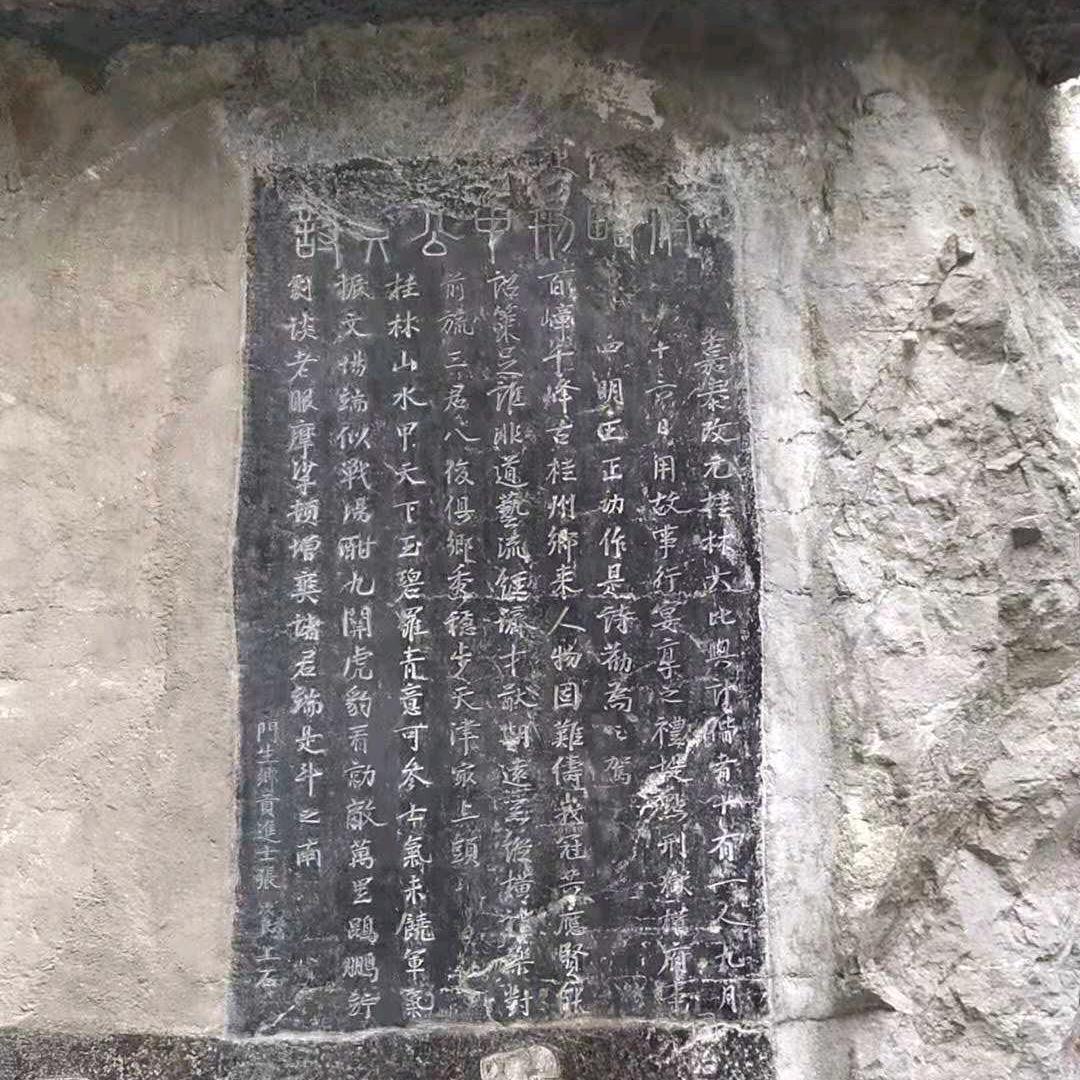 嘉泰改元桂林大比與計偕者十有一人九月
十六日用故事行宴享之禮提點刑獄權府事
四明王正功作是詩勸為之駕
百嶂千峰古桂州鄉來人物固難儔峩冠共應賢能
詔策足誰非道藝流經濟才猷期遠業縱橫禮樂對
前旒三君八俊俱鄉秀穩步天津最上頭
桂林山水甲天下玉碧羅青意可參士氣未饒軍氣
振文場端似戰場酣九關虎豹看勍敵萬里鵾鵬佇
劇談老眼摩挲頓增爽諸君端是斗之南
門生鄉貢進士張上石